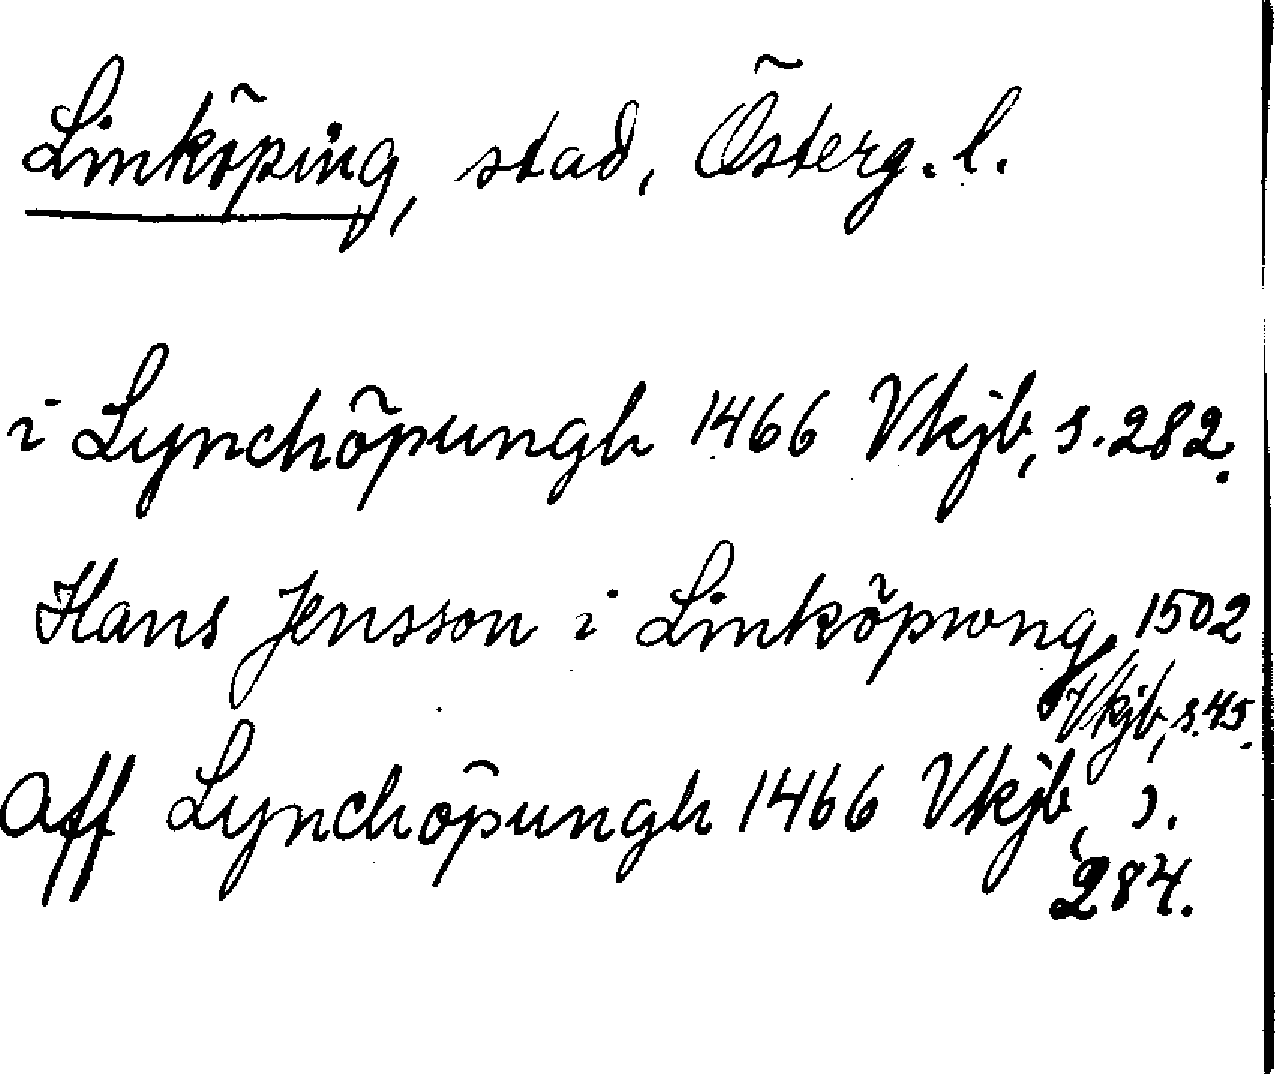 Linköping, stad, Österg. l.
i Lynchöpungh 1466 Vkjb, s. 282.
Hans Jensson i Linköpwng, 1502
Vkjb, s. 45.
aff Lynchöpungh 1466 Vkjb, s.
284.